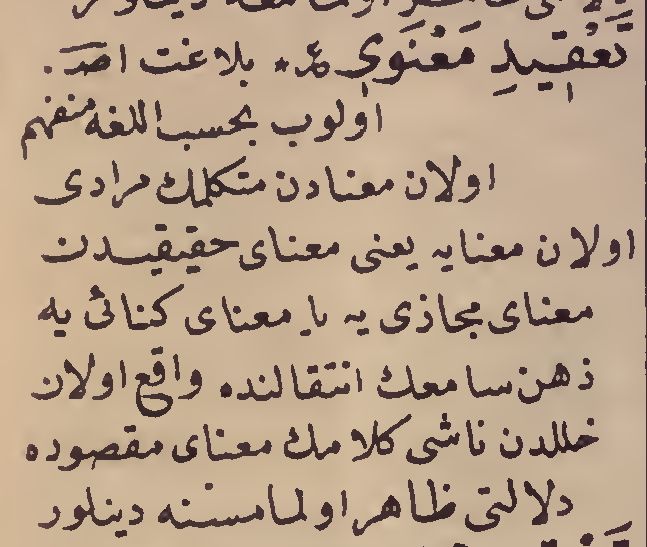 تَعْقِيدِ مَعْنَوِي ع * بلاغت اصد .
اولوب بحسب اللغه منفهم
اولان معنادن متكلمك مرادى
اولان معنايه يعنى معناى حقيقيدن
معناى مجازى يه يا معناى كنائى يه
ذهن سامعك انتقالنده واقع اولان
خللدن ناشى كلامك معناى مقصوده
دلالتى ظاهر اولمامسنه دينلور